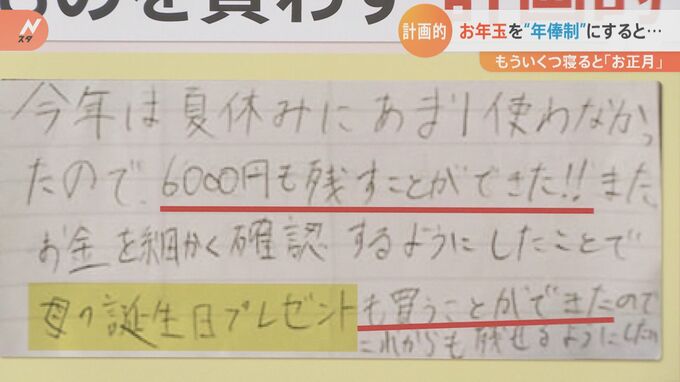 のを買わず 計画的
Nスタ
計画的 お年玉を“年俸制”にすると…
もういくつ寝ると「お正月」
今年は夏休みにあまり使わなかっ
たので、6000円も残すことができた!!また、
お金を細かく確認するようにしたことで
母の誕生日プレゼントも買うことができたので
これからも残せるようにしたい